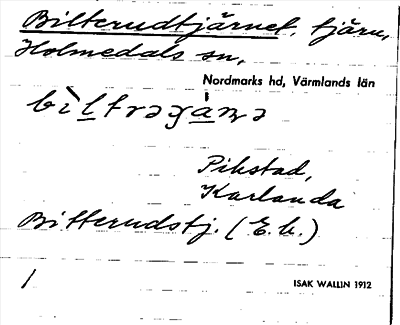 Bilterudtjärnet, tjärn,
Holmedals sn,
Nordmarks hd, Värmlands län
Pikstad,
Karlanda
Bitterudstj. (E.k.)
/
ISAK WALLIN 1912